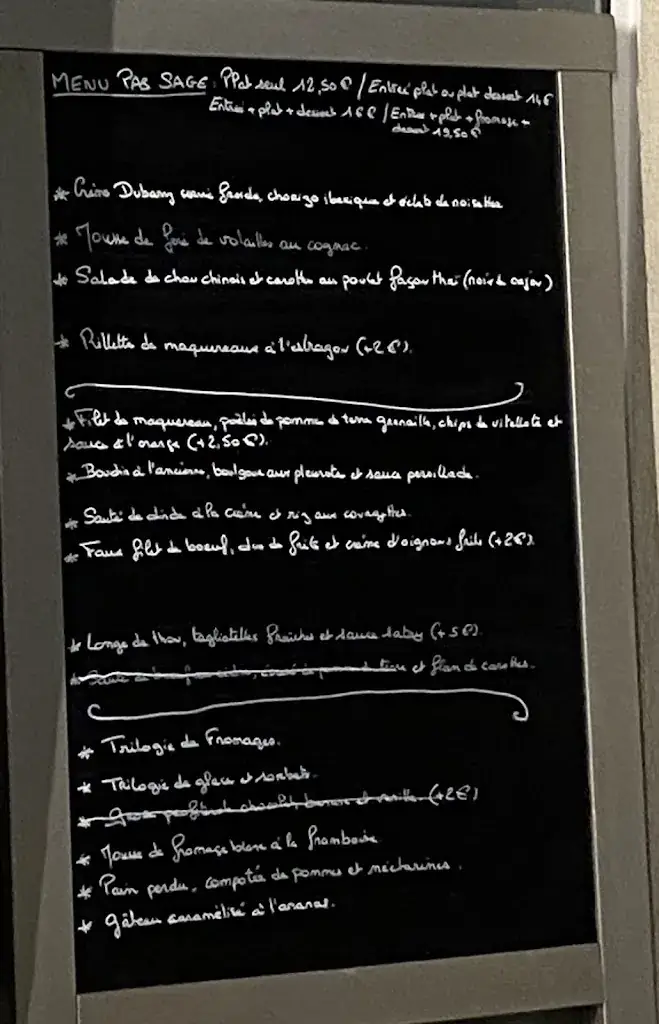 MENU PAS SAGE : Plat seul 12,50€ / Entrée plat ou plat dessert 14€
Entrée + plat + dessert 16€ / Entrée + plat + fromage +
dessert 19,50€
* Crème Dubarry servie froide, chorizo iberique et éclats de noisettes
* Mousse de foie de volailles au cognac.
* Salade de chou chinois et carottes au poulet façon thaï (noix de cajou)
* Rillettes de maquereaux à l'estragon (+2€).
* Filet de maquereau, poêlée de pomme de terre grenaille, chips de vitelotte et
sauce à l'orange (+2,50€).
* Boudin à l'ancienne, boulgour aux pleurotes et sauce persillade.
* Sauté de dinde à la crème et riz aux courgettes.
* Faux filet de boeuf, de frite et crème d'oignons frits (+2€).
* Longe de thon, tagliatelles fraîches et sauce satay (+5€).
* de terre et flan de carottes.
* Trilogie de Fromages.
* Trilogie de glaces et sorbets.
* chocolat, banane et vanille (+2€)
* Mousse de fromage blanc à la framboise
* Pain perdu, compotée de pommes et nectarines.
* Gâteau caramélisé à l'ananas.